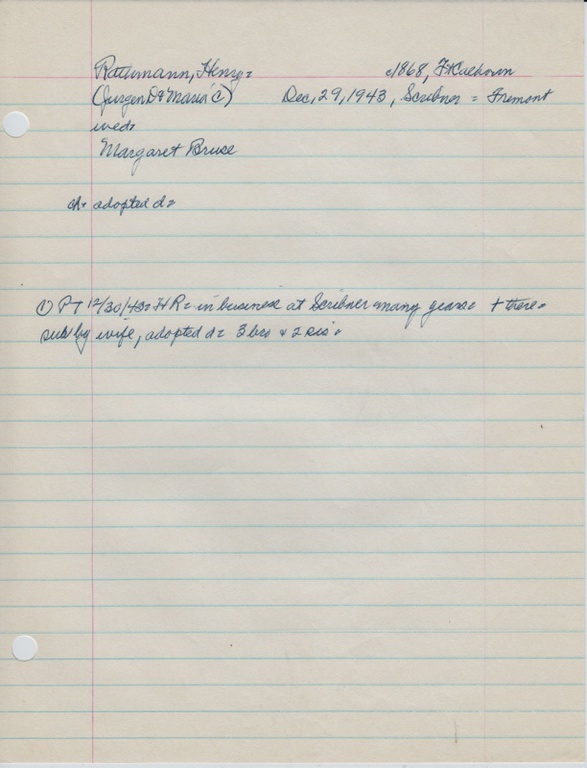 Rathmann, Henry= c1868, FtCalhoun
(Jurgen D & Maria ①) Dec, 29, 1943, Scribner = Fremont
wed=
Margaret Bruse
ch= adopted d=
① PT 12/30/43= HR= in business at Scribner many years= + there=
sur by wife, adopted d= 3 bro & 2 sis=